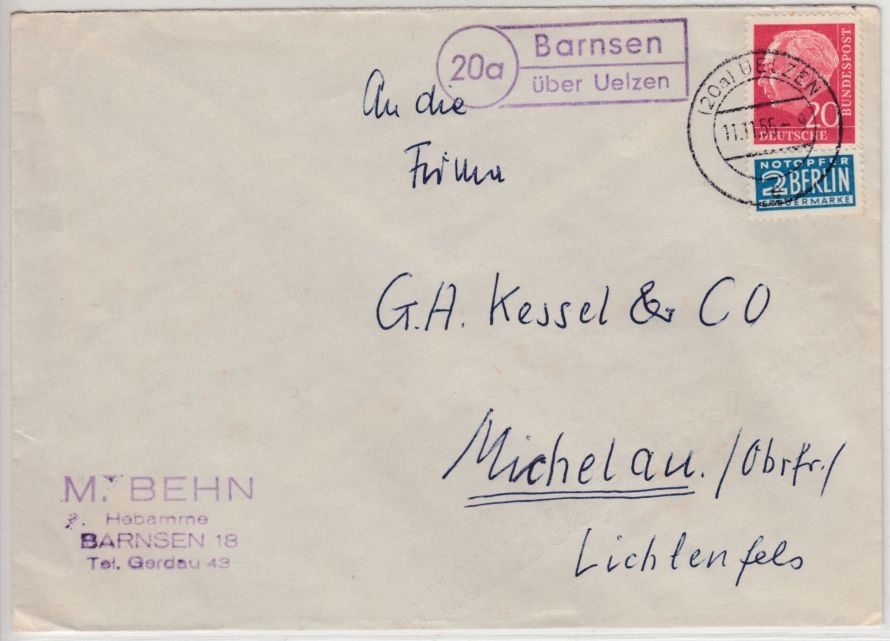 20a
Barnsen
über Uelzen
(20a) UELZEN
11.11.55
e
20
DEUTSCHE
BUNDESPOST
NOTOPFER
2 BERLIN
STEUERMARKE
An die
Firma
G.A. Kessel & CO
Michelau./Obrfr./
Lichtenfels
M. BEHN
Hebamme
BARNSEN 18
Tel. Gerdau 43